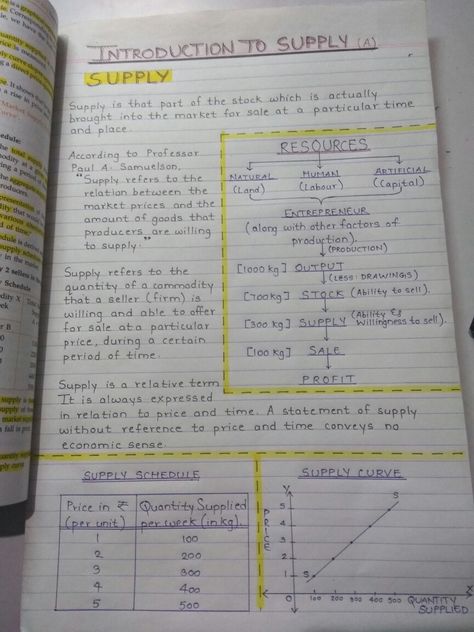 INTRODUCTION TO SUPPLY (A)
SUPPLY
Supply is that part of the stock which is actually
brought into the market for sale at a particular time
and place.
According to Professor
Paul A. Samuelson,
"Supply refers to the
relation between the
market prices and the
amount of goods that
producers are willing
to supply."
Supply refers to the
quantity of a commodity
that a seller (firm) is
willing and able to offer
for sale at a particular
price, during a certain
period of time.
Supply is a relative term
It is always expressed
in relation to price and time. A statement of supply
without reference to price and time conveys no
economic sense.
RESOURCES
NATURAL HUMAN ARTIFICIAL
(Land) (Labour) (Capital)
ENTREPRENEUR
(along with other factors of
production).
(PRODUCTION)
[1000 kg] OUTPUT
(LESS: DRAWINGS)
[700 kg] STOCK (Ability to sell).
[300 kg] SUPPLY (Ability &
Willingness to sell).
[100 kg] SALE
PROFIT
SUPPLY SCHEDULE
Price in ₹ Quantity Supplied
(per unit) per week (in kg).
1 100
2 200
3 300
4 400
5 500
SUPPLY CURVE
Y
PRICE
5
4
3
2
1
0
S
S
100 200 300 400 500 QUANTITY
SUPPLIED
X